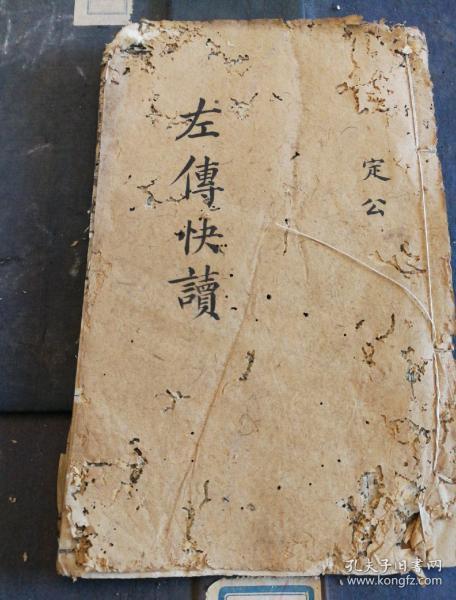 定公
左傳快讀
孔夫子旧书网
www.kongfz.com